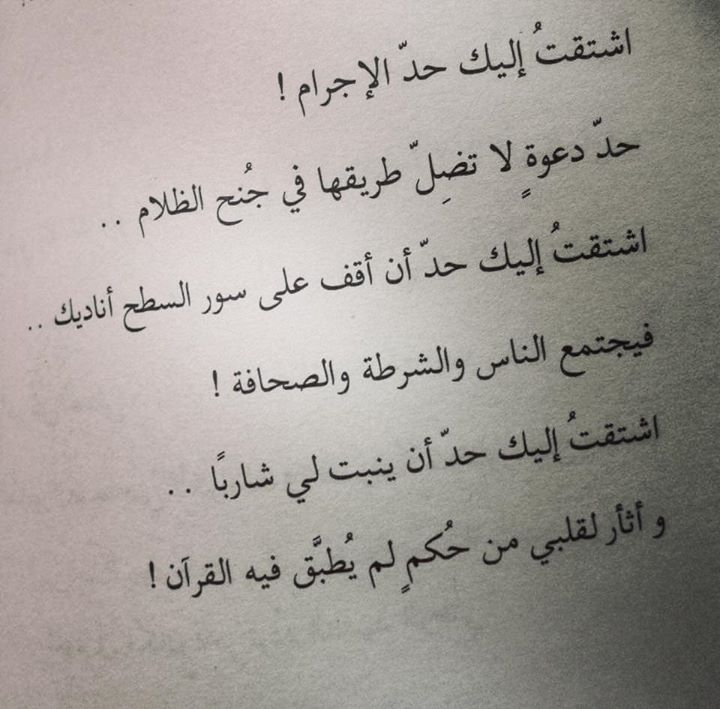 اشتقتُ إليك حدّ الإجرام !
حدّ دعوةٍ لا تضِلّ طريقها في جُنح الظلام ..
اشتقتُ إليك حدّ أن أقف على سور السطح أناديك ..
فيجتمع الناس والشرطة والصحافة !
اشتقتُ إليك حدّ أن ينبت لي شاربًا ..
و أثأر لقلبي من حُكمٍ لم يُطبَّق فيه القرآن !